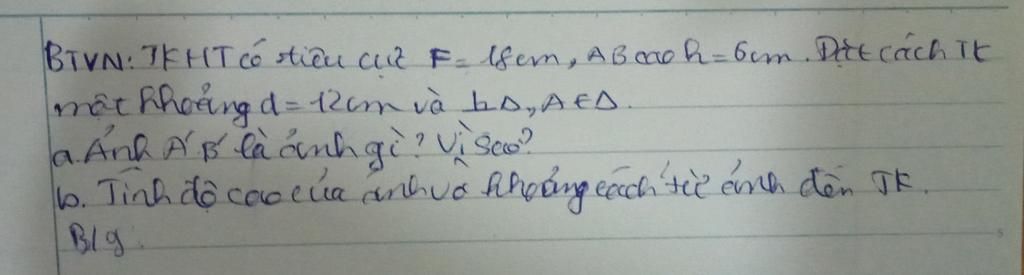 BTVN: TKHT có tiêu cự F = 18cm, AB cao h = 6cm. Đặt cách TK
một khoảng d = 12cm và ⊥Δ, A∈Δ.
a. Ảnh A'B' là ảnh gì? Vì sao?
b. Tính độ cao của ảnh và khoảng cách từ ảnh đến TK.
Blg.